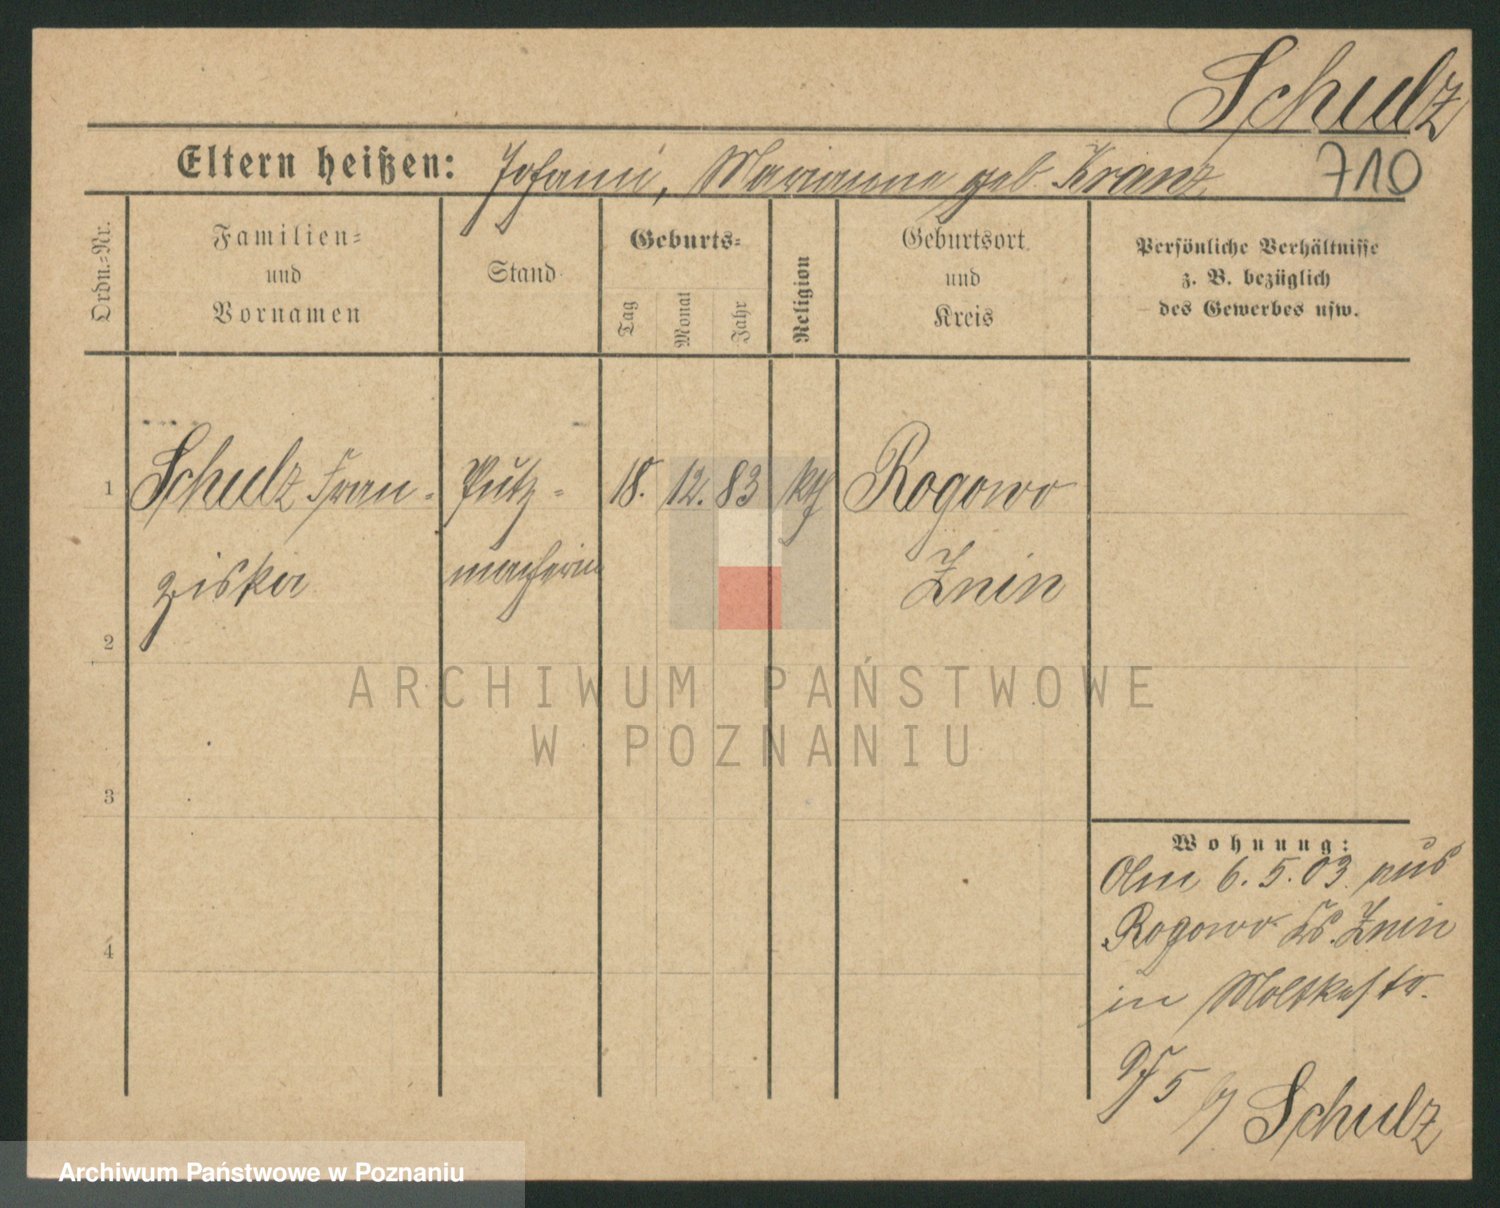 Schulz
710
Eltern heißen: Johann, Marianna geb Kranz
Ordn.-Nr.
Familien-
und
Vornamen
Stand
Geburts-
Tag
Monat
Jahr
Religion
Geburtsort
und
Kreis
Persönliche Verhältnisse
z. B. bezüglich
des Gewerbes usw.
1 Schulz Fran- Putz- 18. 12. 83 kth Rogowo
ziska macherin Znin
2
3
4
Wohnung:
6. 5. 03 aus
Rogowo Ks. Znin
in Moltkestr.
5 Schulz
ARCHIWUM PAŃSTWOWE
W POZNANIU
Archiwum Państwowe w Poznaniu